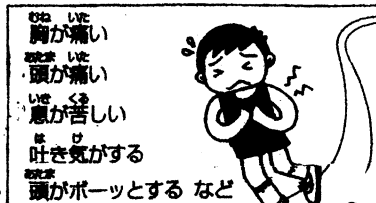 胸が痛い
頭が痛い
息が苦しい
吐き気がする
頭がボーッとする など